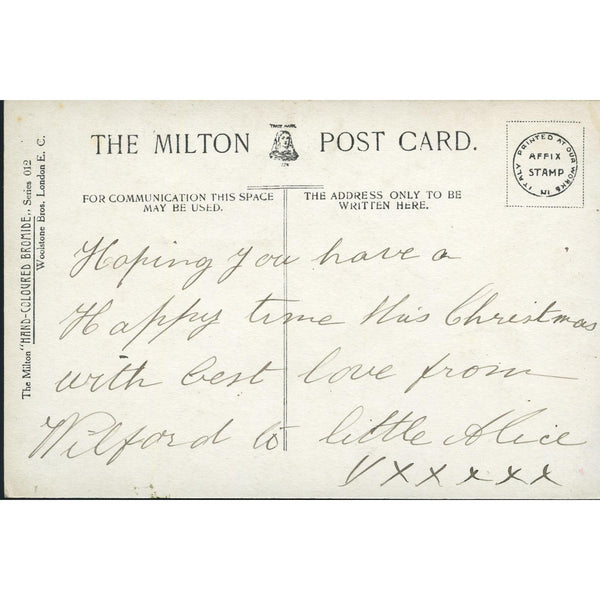 The Milton "HAND-COLOURED BROMIDE" Series 012
Woolstone Bros., London E. C.
TRADE MARK
THE MILTON POST CARD.
PRINTED AT OUR WORKS IN ITALY
AFFIX
STAMP
FOR COMMUNICATION THIS SPACE
MAY BE USED.
THE ADDRESS ONLY TO BE
WRITTEN HERE.
Hoping you have a
Happy time this Christmas
with best love from
Wilford to little Alice
XXXXXX